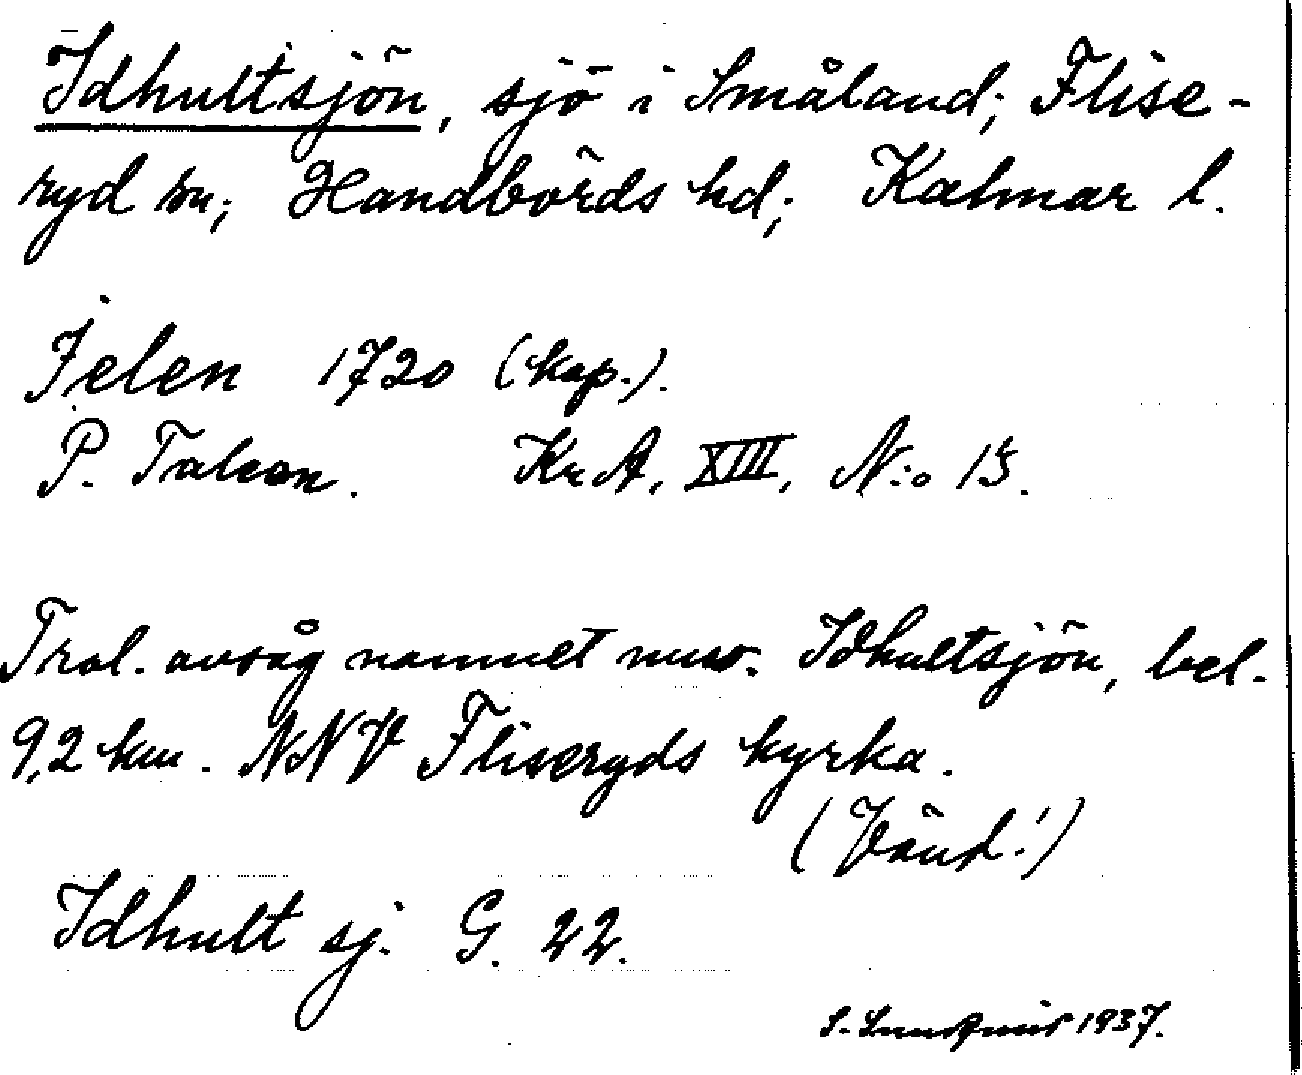 Idhultsjön, sjö i Småland; Flise-
ryd sn; Handbörds hd; Kalmar l.
Jelen 1720 (kap.).
P. Falcon. Kr A, XIII, N:o 15.
Trol. avsåg namnet nuv. Idhultsjön, bel.
9,2 km. NNV Fliseryds kyrka.
(Vänd!)
Idhult sj. G. 22.
S. 1937.